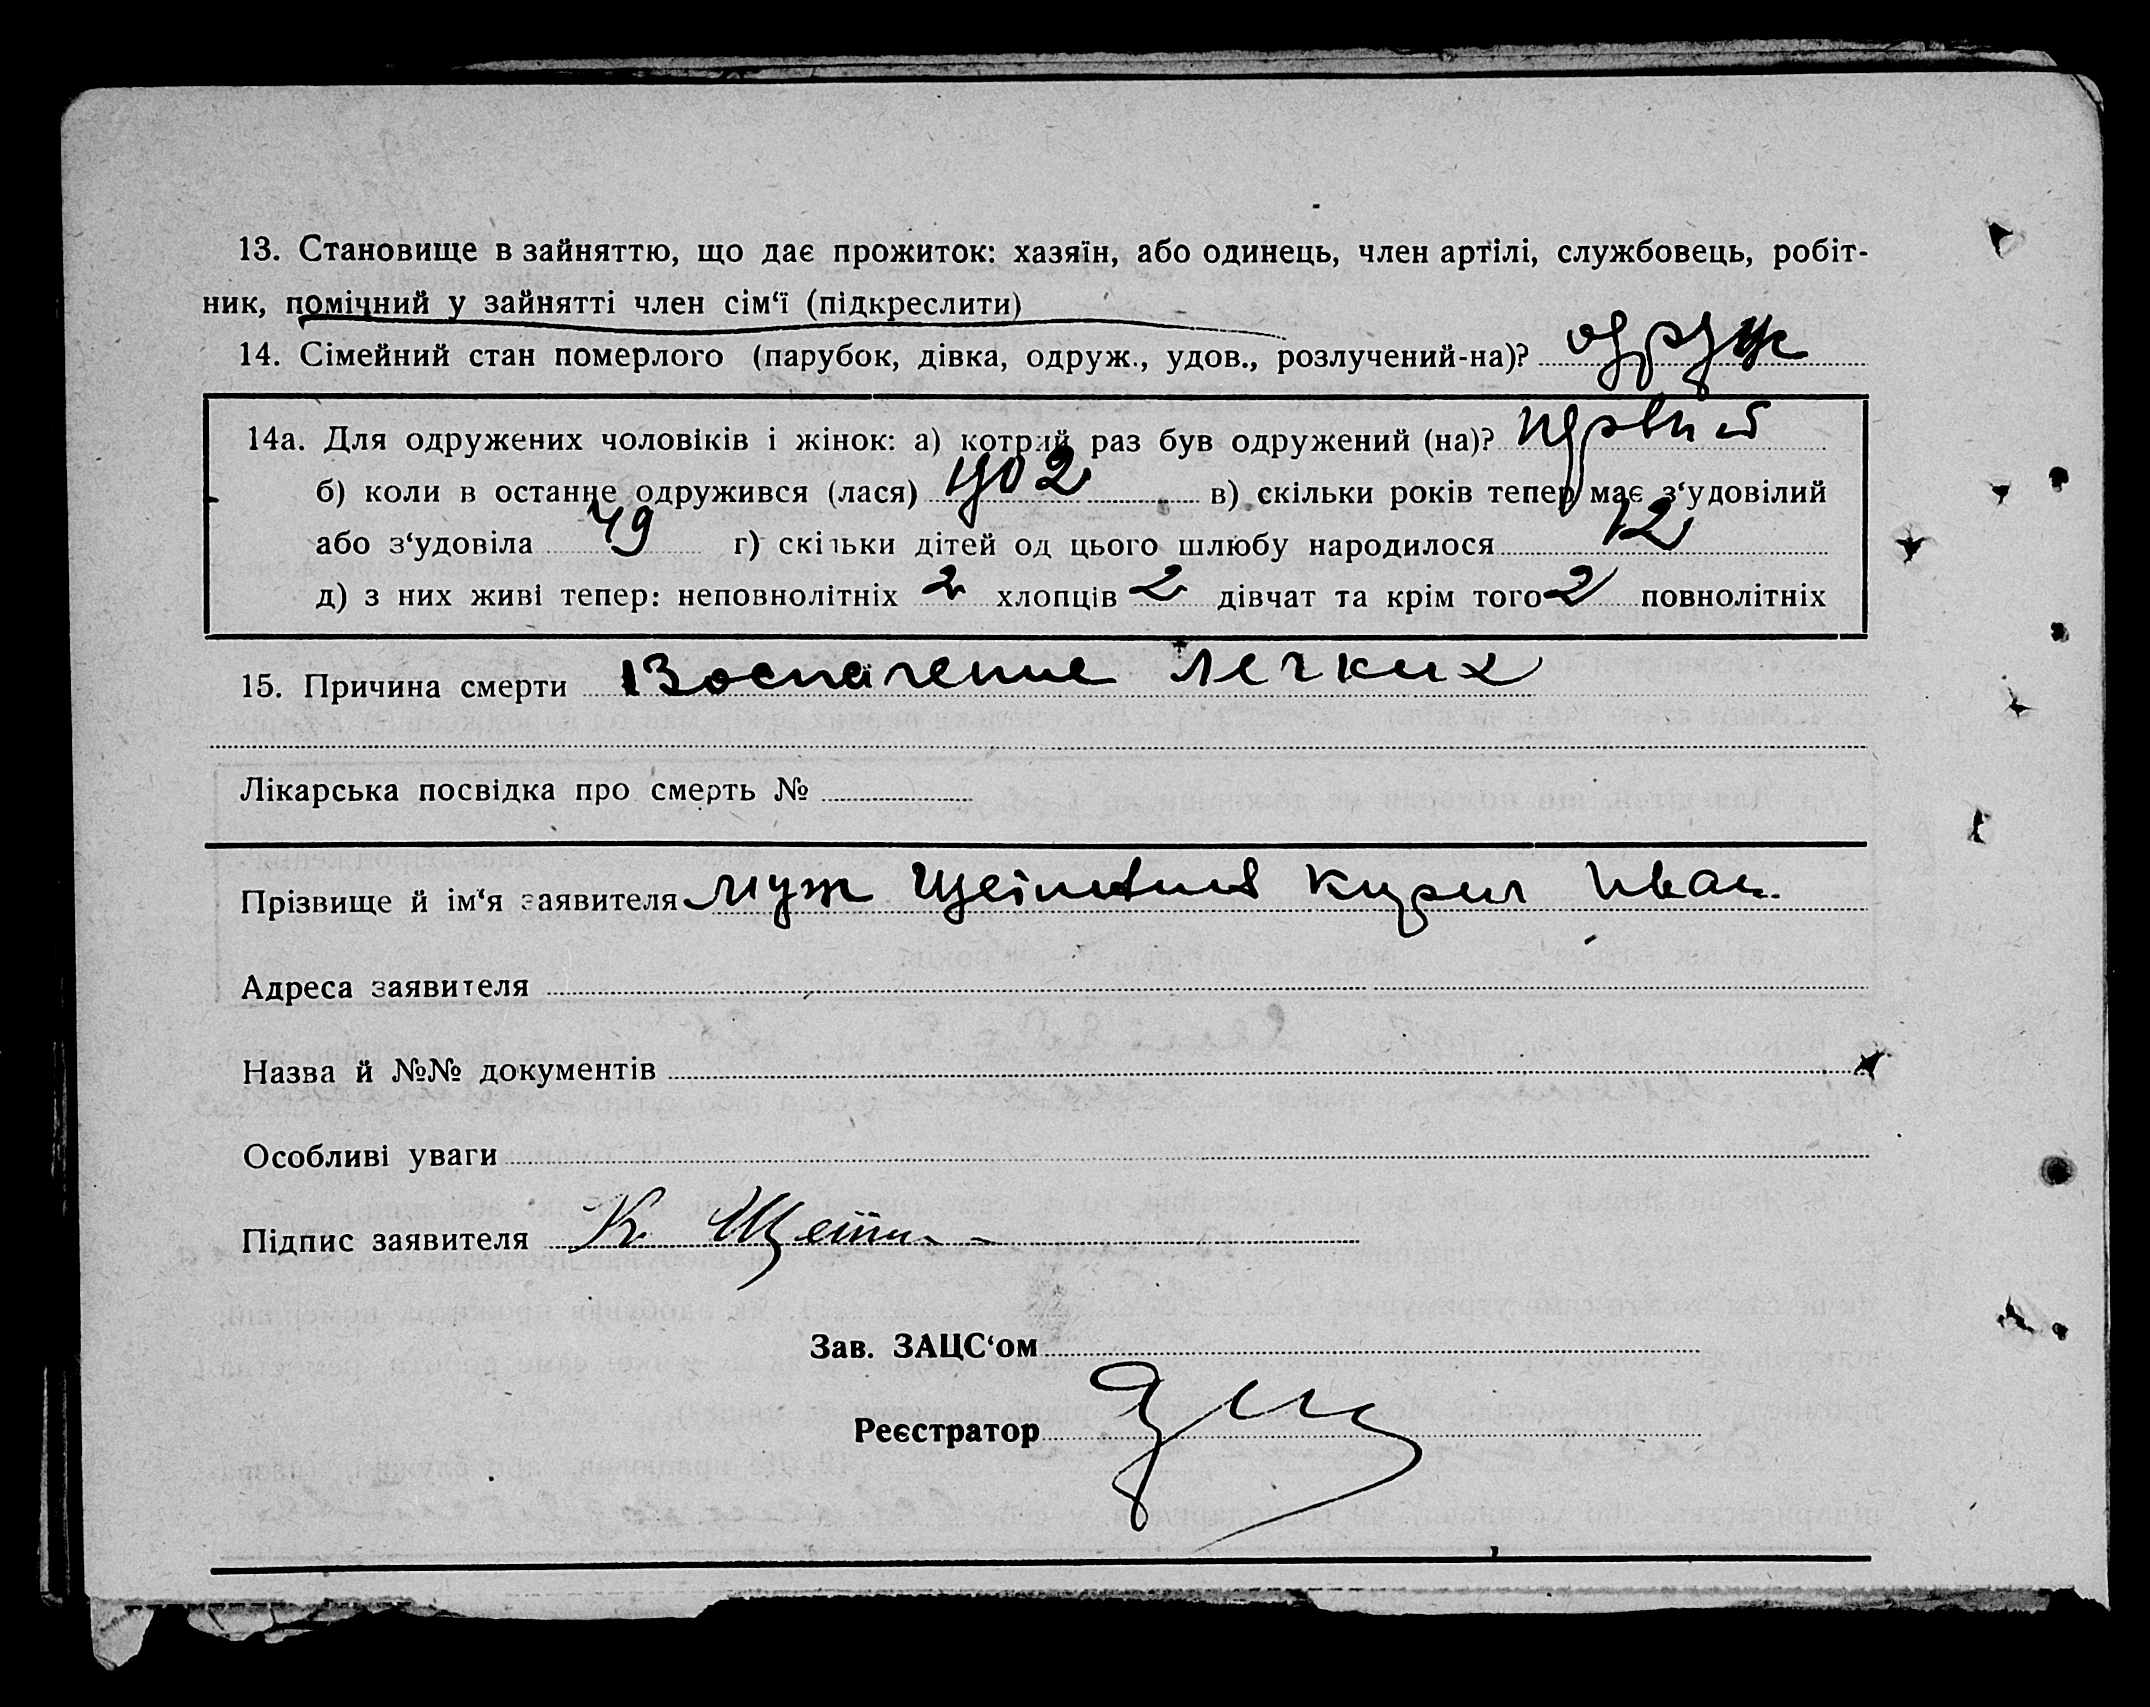 13. Становище в зайняттю, що дає прожиток: хазяїн, або одинець, член артілі, службовець, робіт-
ник, помічний у зайнятті член сім‘ї (підкреслити)
14. Сімейний стан померлого (парубок, дівка, одруж., удов., розлучений-на)? одруж
14а. Для одружених чоловіків і жінок: а) котрий раз був одружений (на)? первий
б) коли в останнє одружився (лася) 902 в) скільки років тепер має з‘удовілий
або з‘удовіла 49 г) скільки дітей од цього шлюбу народилося 12
д) з них живі тепер: неповнолітніх 2 хлопців 2 дівчат та крім того 2 повнолітніх
15. Причина смерти Воспаление легких
Лікарська посвідка про смерть №
Прізвище й ім‘я заявителя муж Кирил Иван.
Адреса заявителя
Назва й №№ документів
Особливі уваги
Підпис заявителя К.
Зав. ЗАЦС‘ом
Реєстратор